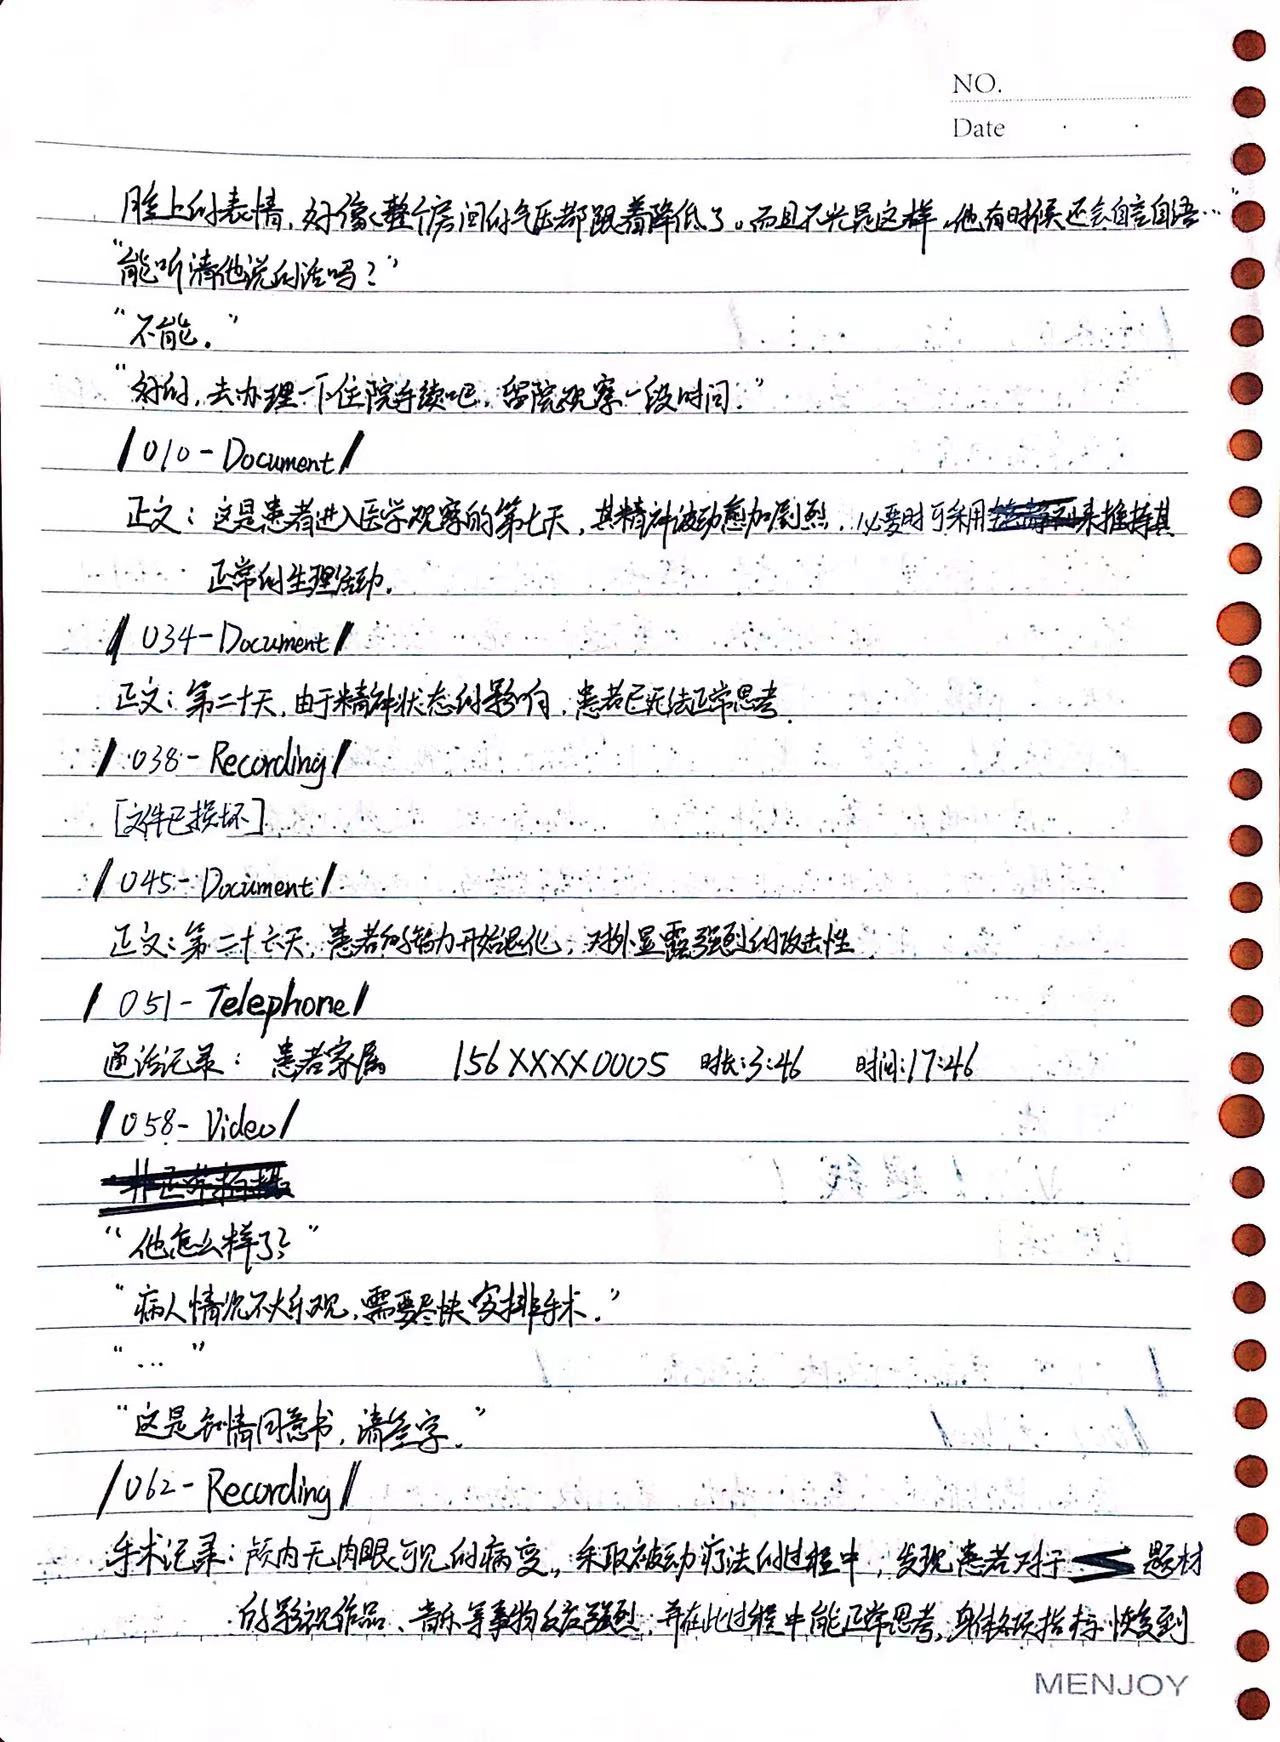 NO.
Date
脸上的表情，好像整个房间的气压都跟着降低了。而且不光是这样，他有时候还会自言自语…”
“能听清他说的话吗？”
“不能。”
“好的，去办理一下住院手续吧，留院观察一段时间。”
/010-Document/
正文：这是患者进入医学观察的第七天，其精神波动愈加剧烈，必要时可采用来维持其
正常的生理活动.
/034-Document/
正文：第二十天，由于精神状态的影响，患者已无法正常思考.
/038-Recording/
[文件已损坏]
/045-Document/
正文：第二十六天，患者的智力开始退化，对外显露强烈的攻击性.
/051-Telephone/
通话记录：患者家属 156XXXX0005 时长:3:46 时间:17:46
/058-Video/
“他怎么样了？”
“病人情况不大乐观，需要尽快安排手术.”
“…”
“这是知情同意书，请签字.”
/062-Recording/
手术记录：颅内无肉眼可见的病变，采取被动疗法的过程中，发现患者对于 题材
的影视作品、音乐等事物反应强烈，并在此过程中能正常思考，身体各项指标恢复到
MENJOY